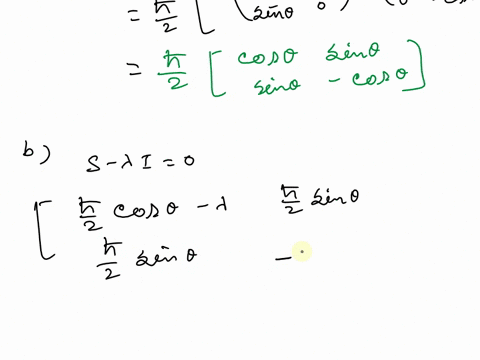 = ħ/2 [ ( sinθ 0 )
= ħ/2 [ cosθ sinθ
sinθ - cosθ ]
b) S - λI = 0
[ ħ/2 cosθ - λ ħ/2 sinθ
ħ/2 sinθ -